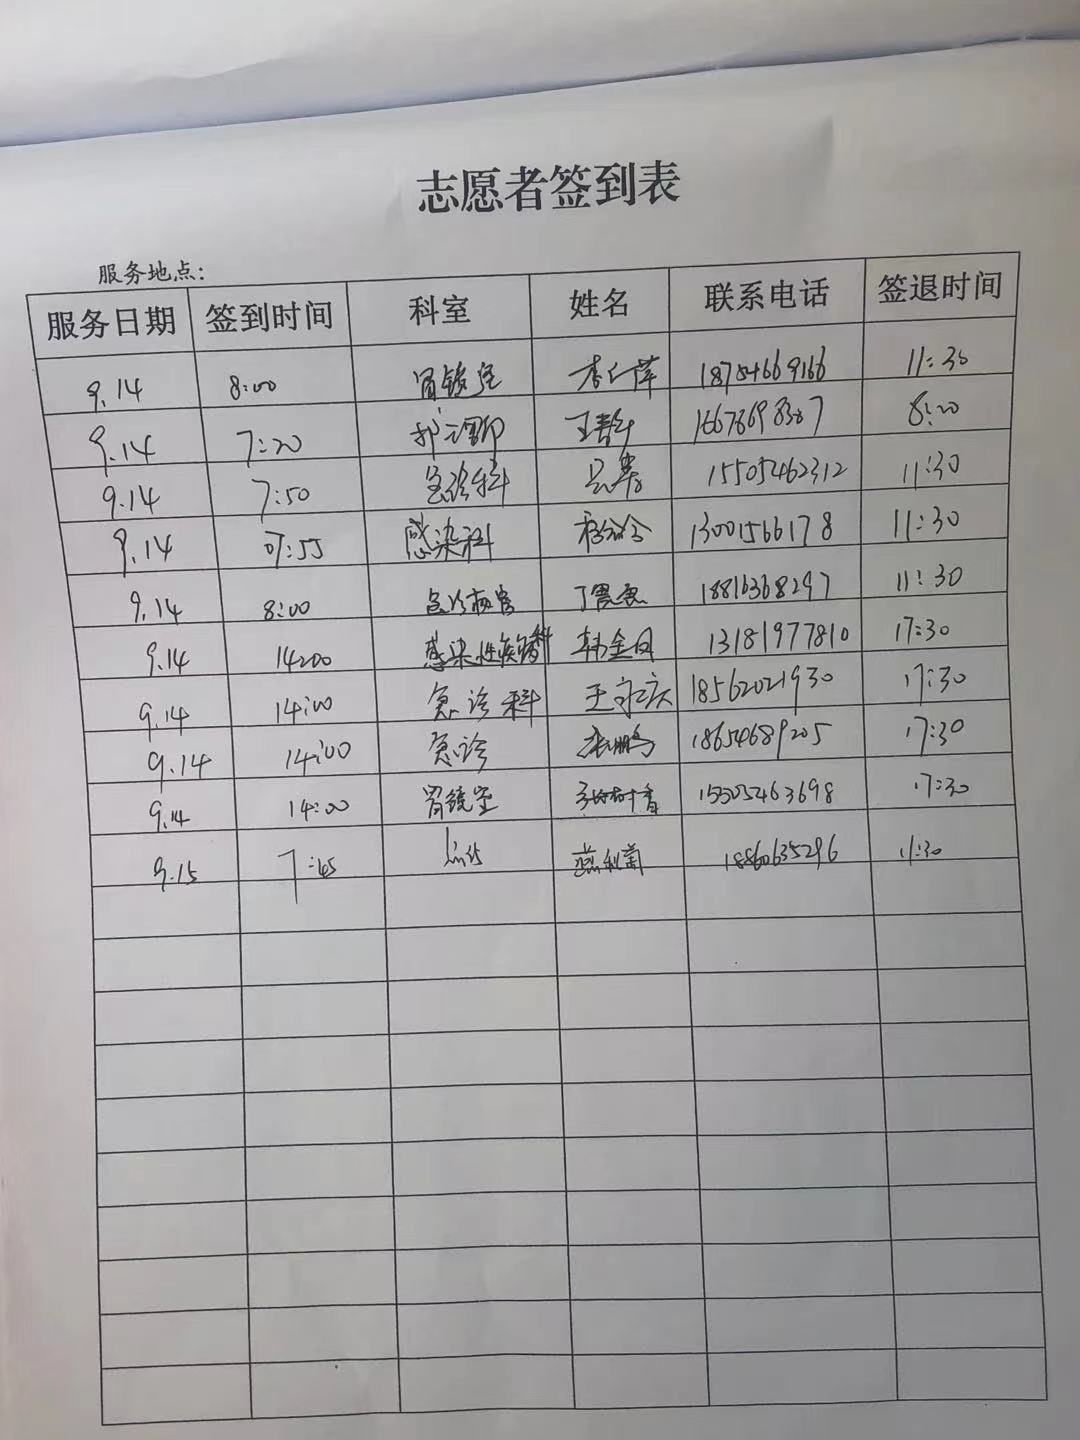 志愿者签到表
服务地点:
服务日期 签到时间 科室 姓名 联系电话 签退时间
9.14 8:00 胃镜室 18754669166 11:30
9.14 7:20 8:20
9.14 7:50 急诊科 15505462312 11:30
9.14 07:55 感染科 13001566178 11:30
9.14 8:00 18816368297 11:30
9.14 14:00 感染性疾病科 韩金凤 13181977810 17:30
9.14 14:00 急诊科 18562021930 17:30
9.14 14:00 急诊 张鹏 18654689205 17:30
9.14 14:00 胃镜室 15505463698 17:30
9.15 7:45 燕秋菊 18860635296 11:30